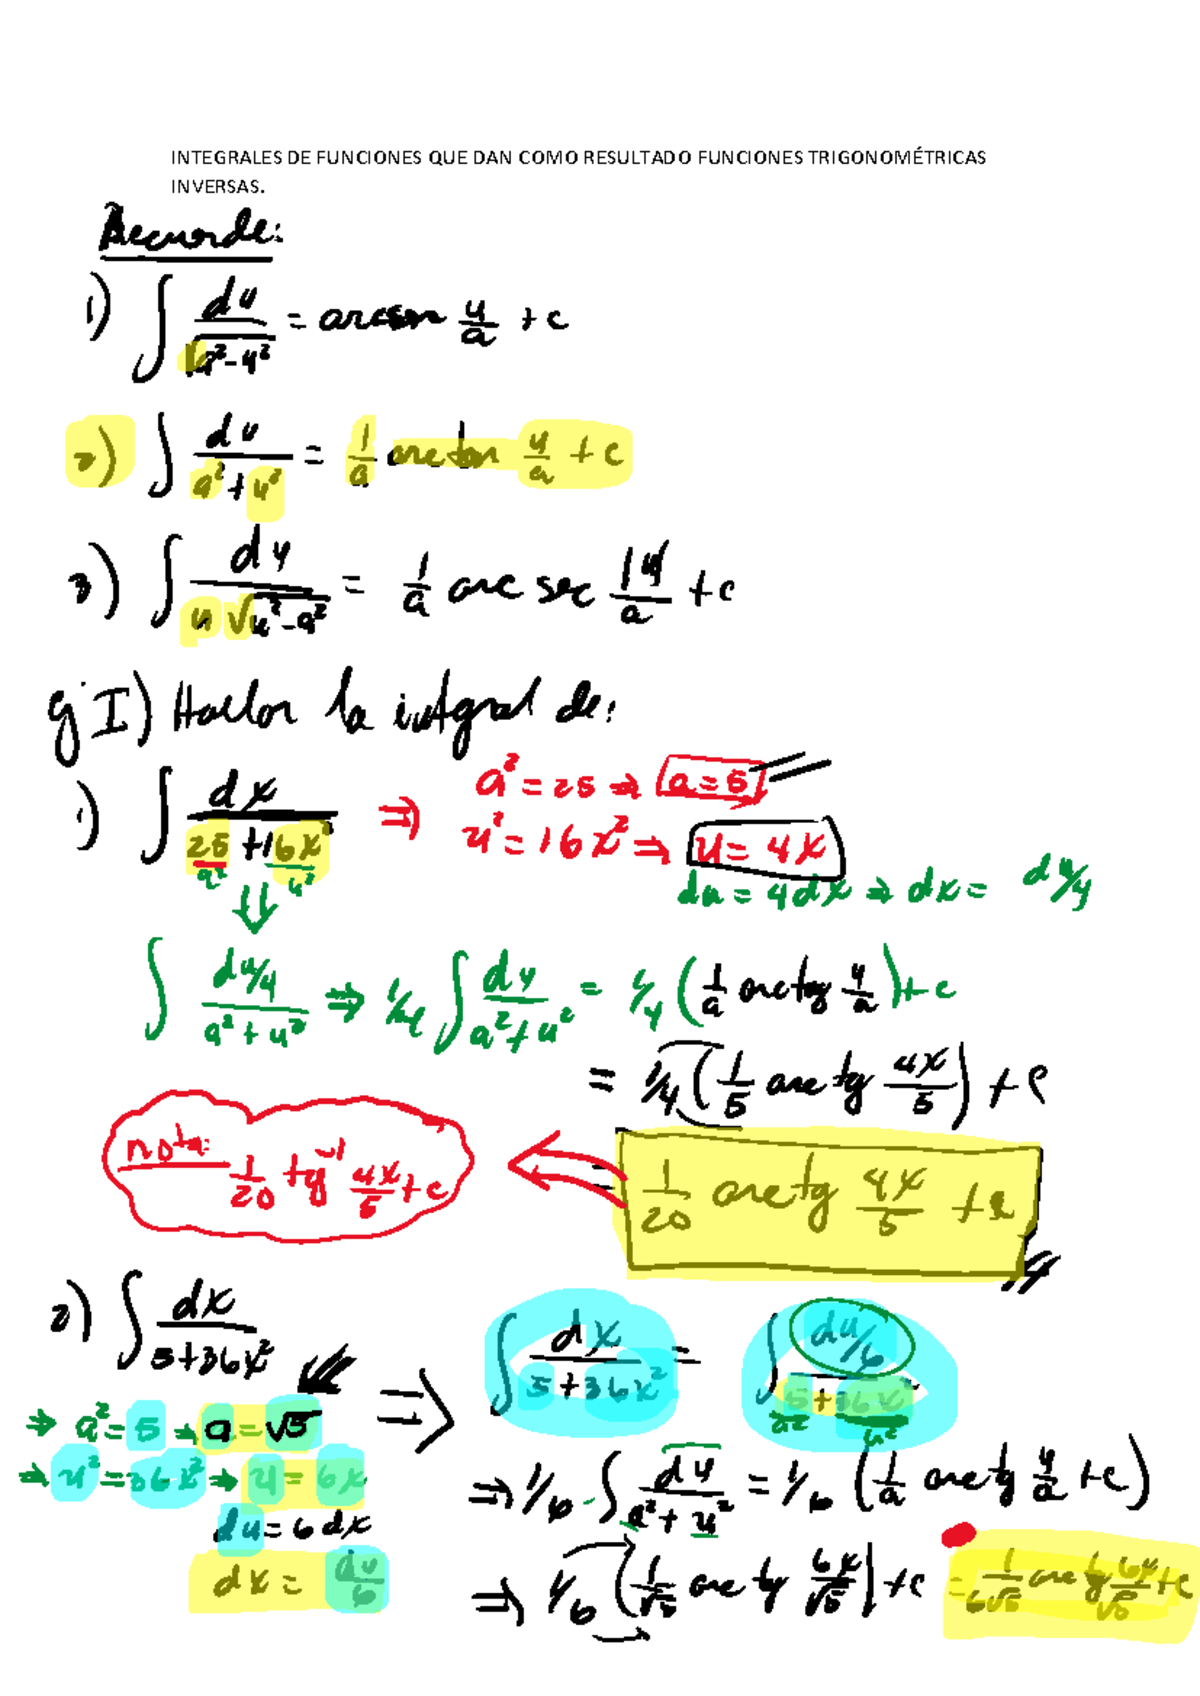 INTEGRALES DE FUNCIONES QUE DAN COMO RESULTADO FUNCIONES TRIGONOMÉTRICAS
INVERSAS.
Recuerde:
1) ∫ du/√(a²-u²) = arcsen u/a + c
2) ∫ du/(a²+u²) = 1/a arctan u/a + c
3) ∫ du/(u√(u²-a²)) = 1/a arc sec |u|/a + c
Ej I) Hallar la integral de:
1) ∫ dx/(25+16x²) ⇒ a² = 25 ⇒ a = 5
u² = 16x² ⇒ u = 4x
a² u²
du = 4dx ⇒ dx = du/4
∫ (du/4)/(a²+u²) ⇒ 1/4 ∫ du/(a²+u²) = 1/4 (1/a arctg u/a) + c
= 1/4 (1/5 arctg 4x/5) + c
nota: 1/20 tg⁻¹ 4x/5 + c
= 1/20 arctg 4x/5 + c
2) ∫ dx/(5+36x²) ⇒ ∫ dx/(5+36x²) = ∫ (du/6)/(5+36x²)
a² u²
⇒ a² = 5 → a = √5
⇒ u² = 36x² → u = 6x
du = 6dx
dx = du/6
⇒ 1/6 · ∫ du/(a²+u²) = 1/6 (1/a arctg u/a + c)
⇒ 1/6 (1/√5 arctg 6x/√5) + c = 1/(6√5) arctg 6x/√5 + c